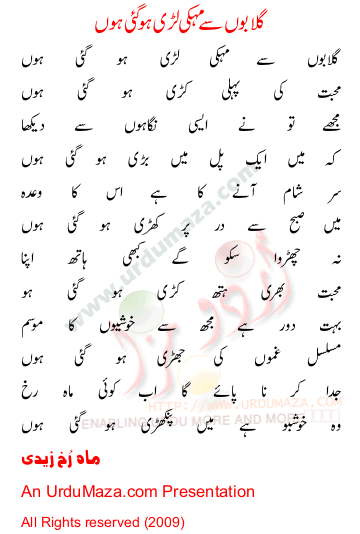 گلابوں سے مہکی لڑی ہو گئی ہوں
گلابوں سے مہکی لڑی ہو گئی ہوں
محبت کی پہلی کڑی ہو گئی ہوں
مجھے تو نے ایسی نگاہوں سے دیکھا
کہ میں ایک پل میں بڑی ہو گئی ہوں
سر شام آنے کا ہے اس کا وعدہ
میں صبح سے در پر کھڑی ہو گئی ہوں
نہ چھڑوا سکو گے کبھی ہاتھ اپنا
محبت بھری ہتھ کڑی ہو گئی ہو
بہت دور ہے مجھ سے خوشیوں کا موسم
مسلسل غموں کی جھڑی ہو گئی ہوں
جدا کر نا پائے گا اب کوئی ماہ رخ
وہ خوشبو ہے میں پنکھڑی ہو گئی ہوں
ماہ رُخ زیدی
An UrduMaza.com Presentation
All Rights reserved (2009)
www.urdumaza.com
اُردو مزا
HTTP://WWW.URDUMAZA.COM
ENABLING YOU MORE AND MORE